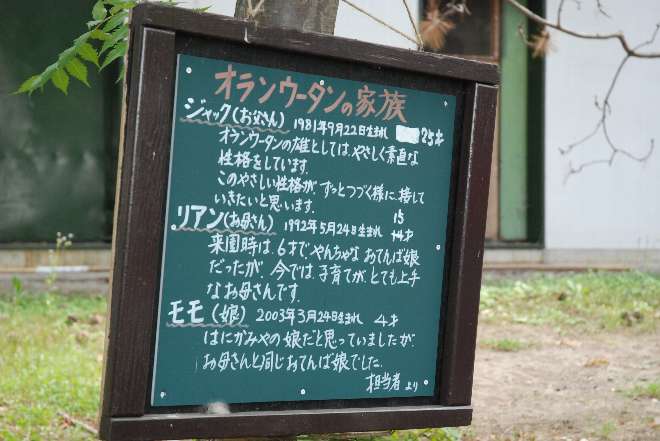 オランウータンの家族
ジャック(お父さん) 1981年9月22日生まれ 25才
オランウータンの雄としては、やさしく素直な
性格をしています。
このやさしい性格が、ずっとつづく様に、接して
いきたいと思います。
リアン(お母さん) 1992年5月24日生まれ 15才
来園時は、6才で、やんちゃな おてんば娘
だったが、今では、子育てが、とても上手
なお母さんです。
モモ(娘) 2003年3月24日生まれ 4才
はにかみやの娘だと思っていましたが、
お母さんと同じおてんば娘でした。
担当者より